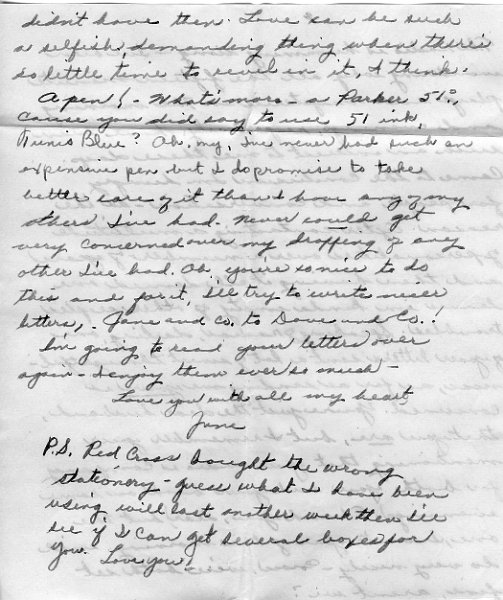 didn't have then. Love can be such
a selfish, demanding thing when there's
so little time to revel in it, I think.
A pen! - What's more - a Parker 51?,
cause you did say to use 51 ink,
Tunis Blue? Oh, my, I've never had such an
expensive pen but I do promise to take
better care of it than I have any of my
others I've had. Never could get
very concerned over my dropping of any
other I've had. Oh, you're so nice to do
this and for it, I'll try to write nicer
letters, - Jane and co. to Dave and Co.!
I'm going to read your letters over
again - I enjoy them ever so much -
Love you with all my heart
June
P.S. Red Cross bought the wrong
stationery - guess what I have been
using will last another week then I'll
see if I can get several boxes for
you. Love you!